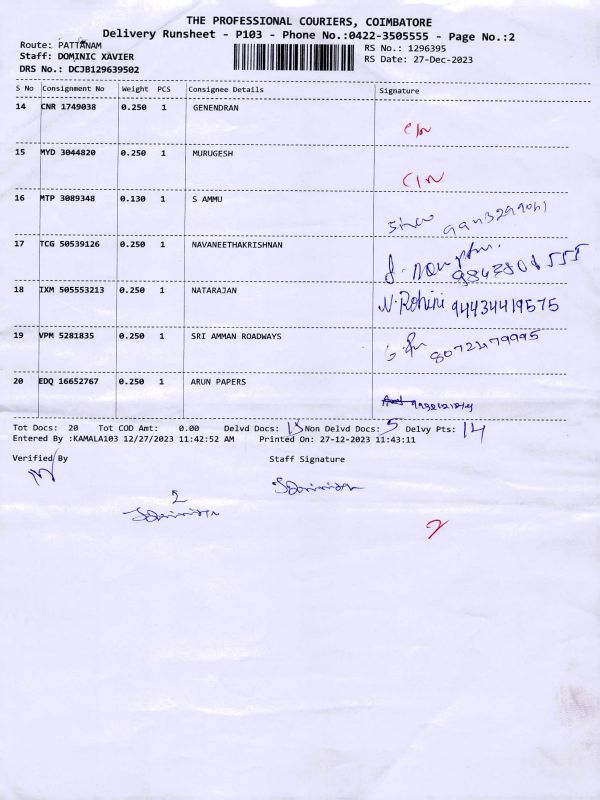 THE PROFESSIONAL COURIERS, COIMBATORE
Delivery Runsheet - P103 - Phone No.:0422-3505555 - Page No.:2
Route: PATTANAM
RS No.: 1296395
Staff: DOMINIC XAVIER
RS Date: 27-Dec-2023
DRS No.: DCJB129639502
S No Consignment No Weight PCS Consignee Details Signature
14 CNR 1749038 0.250 1 GENENDRAN
15 MYD 3044820 0.250 1 MURUGESH
16 MTP 3089348 0.130 1 S AMMU
17 TCG 50539126 0.250 1 NAVANEETHAKRISHNAN
18 IXM 505553213 0.250 1 NATARAJAN N.Rohini 94434419575
19 VPM 5281835 0.250 1 SRI AMMAN ROADWAYS
20 EDQ 16652767 0.250 1 ARUN PAPERS
Tot Docs: 20 Tot COD Amt: 0.00 Delvd Docs: Non Delvd Docs: 5 Delvy Pts: 14
Entered By :KAMALA103 12/27/2023 11:42:52 AM Printed On: 27-12-2023 11:43:11
Verified By Staff Signature
2